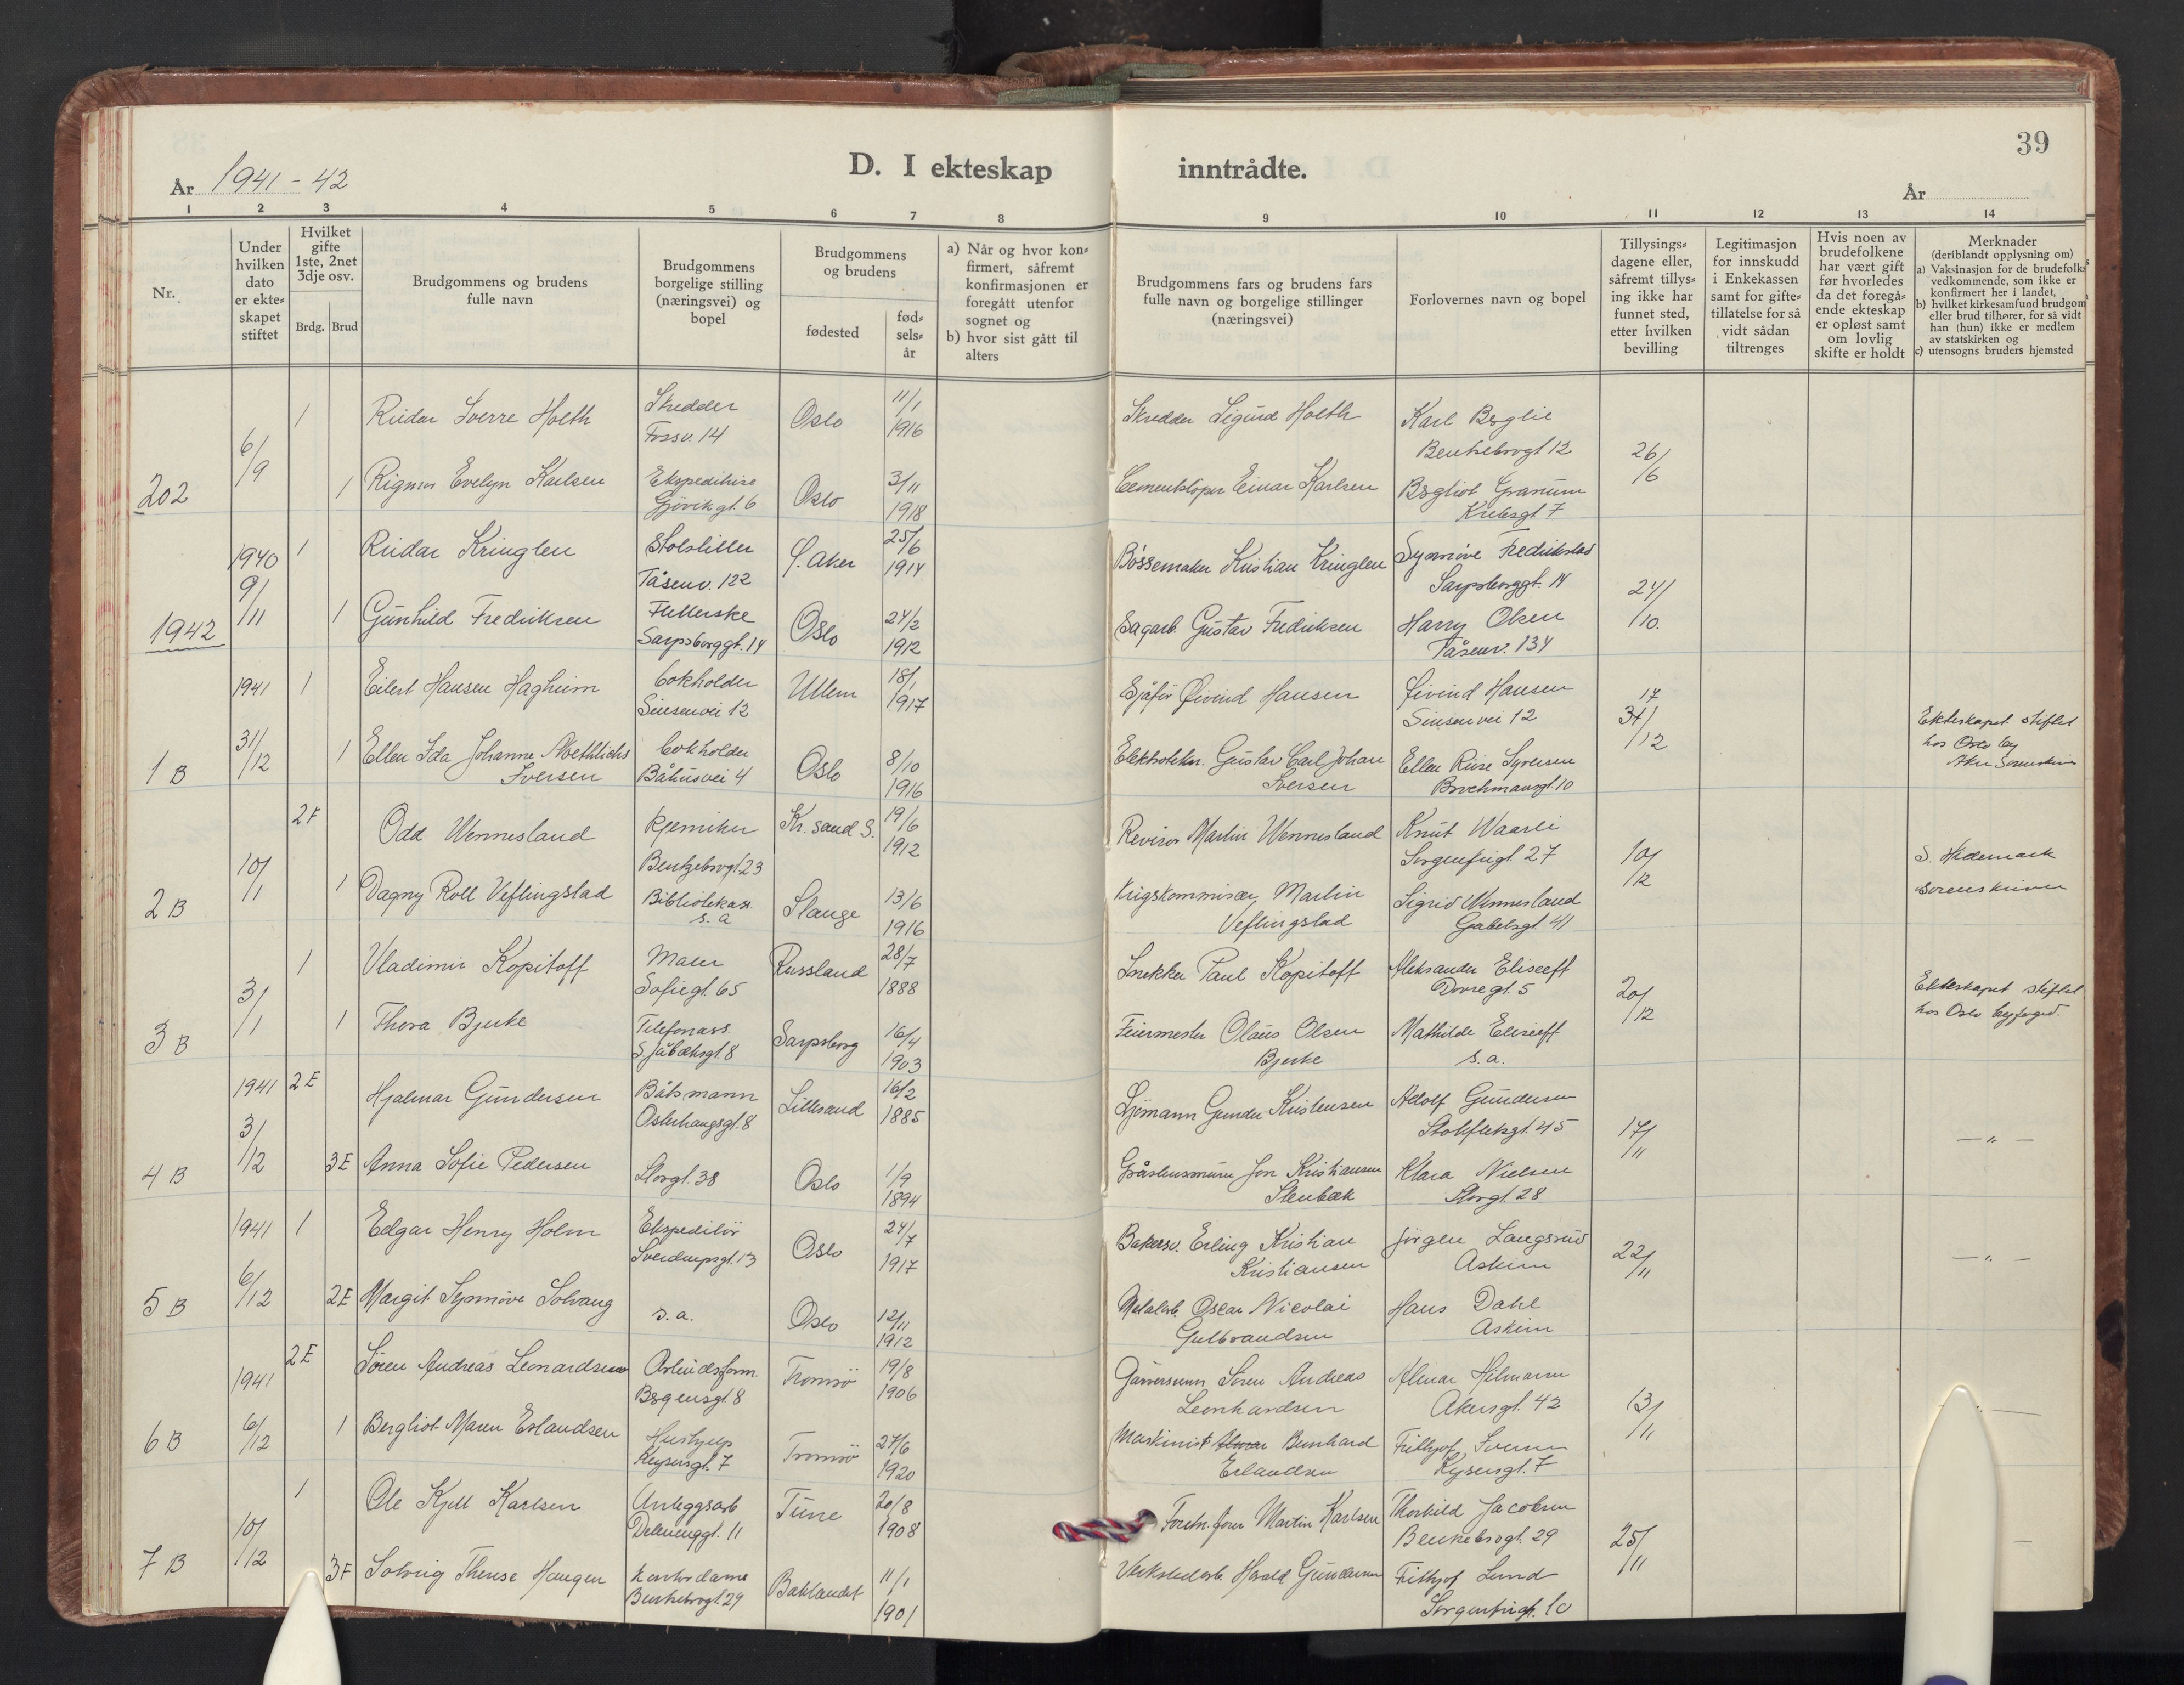 39
D. I ekteskap inntrådte.
År 1941-42
År
1 2 3 4 5 6 7 8 9 10 11 12 13 14
Nr.
Under
hvilken
dato
er ekte-
skapet
stiftet
Hvilket
gifte
1ste, 2net
3dje osv.
Brdg. Brud
Brudgommens og brudens
fulle navn
Brudgommens
borgelige stilling
(næringsvei) og
bopel
Brudgommens
og brudens
fødested
fød-
sels-
år
a) Når og hvor kon-
firmert, såfremt
konfirmasjonen er
foregått utenfor
sognet og
b) hvor sist gått til
alters
Brudgommens fars og brudens fars
fulle navn og borgelige stillinger
(næringsvei)
Forlovernes navn og bopel
Tillysings-
dagene eller,
såfremt tillys-
ing ikke har
funnet sted,
etter hvilken
bevilling
Legitimasjon
for innskudd
i Enkekassen
samt for gifte-
tillatelse for så
vidt sådan
tiltrenges
Hvis noen av
brudefolkene
har vært gift
før hvorledes
da det foregå-
ende ekteskap
er oppløst samt
om lovlig
skifte er holdt
Merknader
(deriblandt opplysning om)
a) Vaksinasjon for de brudefolks
vedkommende, som ikke er
konfirmert her i landet,
b) hvilket kirkesamfund brudgom
eller brud tilhører, for så vidt
han (hun) ikke er medlem
av statskirken og
c) utensogns bruders hjemsted
202
6/9
1 Reidar Sverre Holth Skredder Oslo 11/1 Skredder Sigurd Holth Karl Berglie
Fossv. 14 1916 Bentsebrogt 12
26/6
1 Rigmor Evelyn Karlsen Ekspeditrise Oslo 3/11 Einar Karlsen Bergliot Granum
Gjøvikgt. 6 1918 Krebsgt 7
1940 1 Reidar Kringlen Ø. Aker 25/6 Bøssemaker Kristian Kringlen Synnøve Fredrikstad
Tåsenv. 122 1914 Sarpsborggt. 14
9/11
24/10.
1942
1 Gunhild Fredriksen Fletterske Oslo 24/2 Sagarb. Gustav Fredriksen Harry Olsen
Sarpsborggt. 14 1912 Tåsenv. 134
1941 1 Eilert Hansen Hagheim Bokholder Ullern 18/1 Sjåfør Øivind Hansen Øivind Hansen
Sinsenvei 12 1917 Sinsenvei 12
17
31/12
31/12
1 B
1 Ellen Ida Johanne Bokholder Oslo 8/10 Gustav Carl Johan Ellen Riise Syversen
Iversen Båhusvei 4 1916 Iversen Brochmannsgt. 10
Ekteskapet stiftet
hos Oslo by
2F Odd Wennesland Kjemiker Kr. sand S. 19/6 Revisor Martin Wennesland Knut Waarli
Bentsebrogt. 23 1912 Sorgenfrigt 27
10/1
10/12
S. Hedemark
sorenskriver
2 B
1 Dagny Roll Veflingstad Bibliotekass. Stange 13/6 Krigskommisær Martin Sigrid Wennesland
s. a 1916 Veflingstad Gabelsgt. 41
1 Vladimir Kopitoff Maler Russland 28/7 Snekker Paul Kopitoff Aleksander Eliseeff
Sofiegt. 65 1888 Dovregt. 5
3/1
20/12
Ekteskapet stiftet
hos Oslo byfoged.
3 B
1 Thora Bjerke Telefonass. Sarpsborg 16/4 Feiermester Olaus Olsen Mathilde Eliseeff
S. Jåbæksgt. 8 1903 Bjerke s. a.
1941 2E Hjalmar Gundersen Båtsmann Lillesand 16/2 Sjømann Gunder Kristensen Adolf Gundersen
Østerhausgt. 8 1885 Stokfletsgt. 45
3/12
17/11
— " —
4 B
3E Anna Sofie Pedersen Storgt. 38 Oslo 1/9 Jon Kristiansen Klara Nielsen
1894 Stenbæk Storgt 28
1941 1 Edgar Henry Holm Ekspeditør Oslo 24/7 Bakersv. Erling Kristian Jørgen Langsrud
Sverdrupsgt. 13 1917 Kristiansen Askim
6/12
22/11
— " —
5 B
2E Margit Synnøve Solvang s. a. Oslo 12/11 Metalarb. Oscar Nicolai Hans Dahl
1912 Gulbrandsen Askim
1941 2E Søren Andreas Leonardsen Arbeidsform. Tromsø 19/8 Søren Andreas Almar Hilmarm
Bergensgt. 8 1906 Leonhardsen Akersgt. 42
6/12
13/11
6 B
1 Bergliot Maren Erlandsen Hushjelp Tromsø 27/6 Maskinist Bernhard Frithjof
Keysersgt. 7 1920 Erlandsen Kysersgt. 7
1 Ole Kjell Karlsen Anleggsarb Tune 20/8 Martin Karlsen Thorkild Jacobsen
Delenenggt. 11 1908 Bentsebrogt. 29
10/12
25/11
7 B
3F Solveig Therese Haugen Kontordame Baklandet 11/1 Verkstedarb. Harald Gundersen Frithjof Lund
Bentsebrogt. 29 1901 Sorgenfrigt. 10